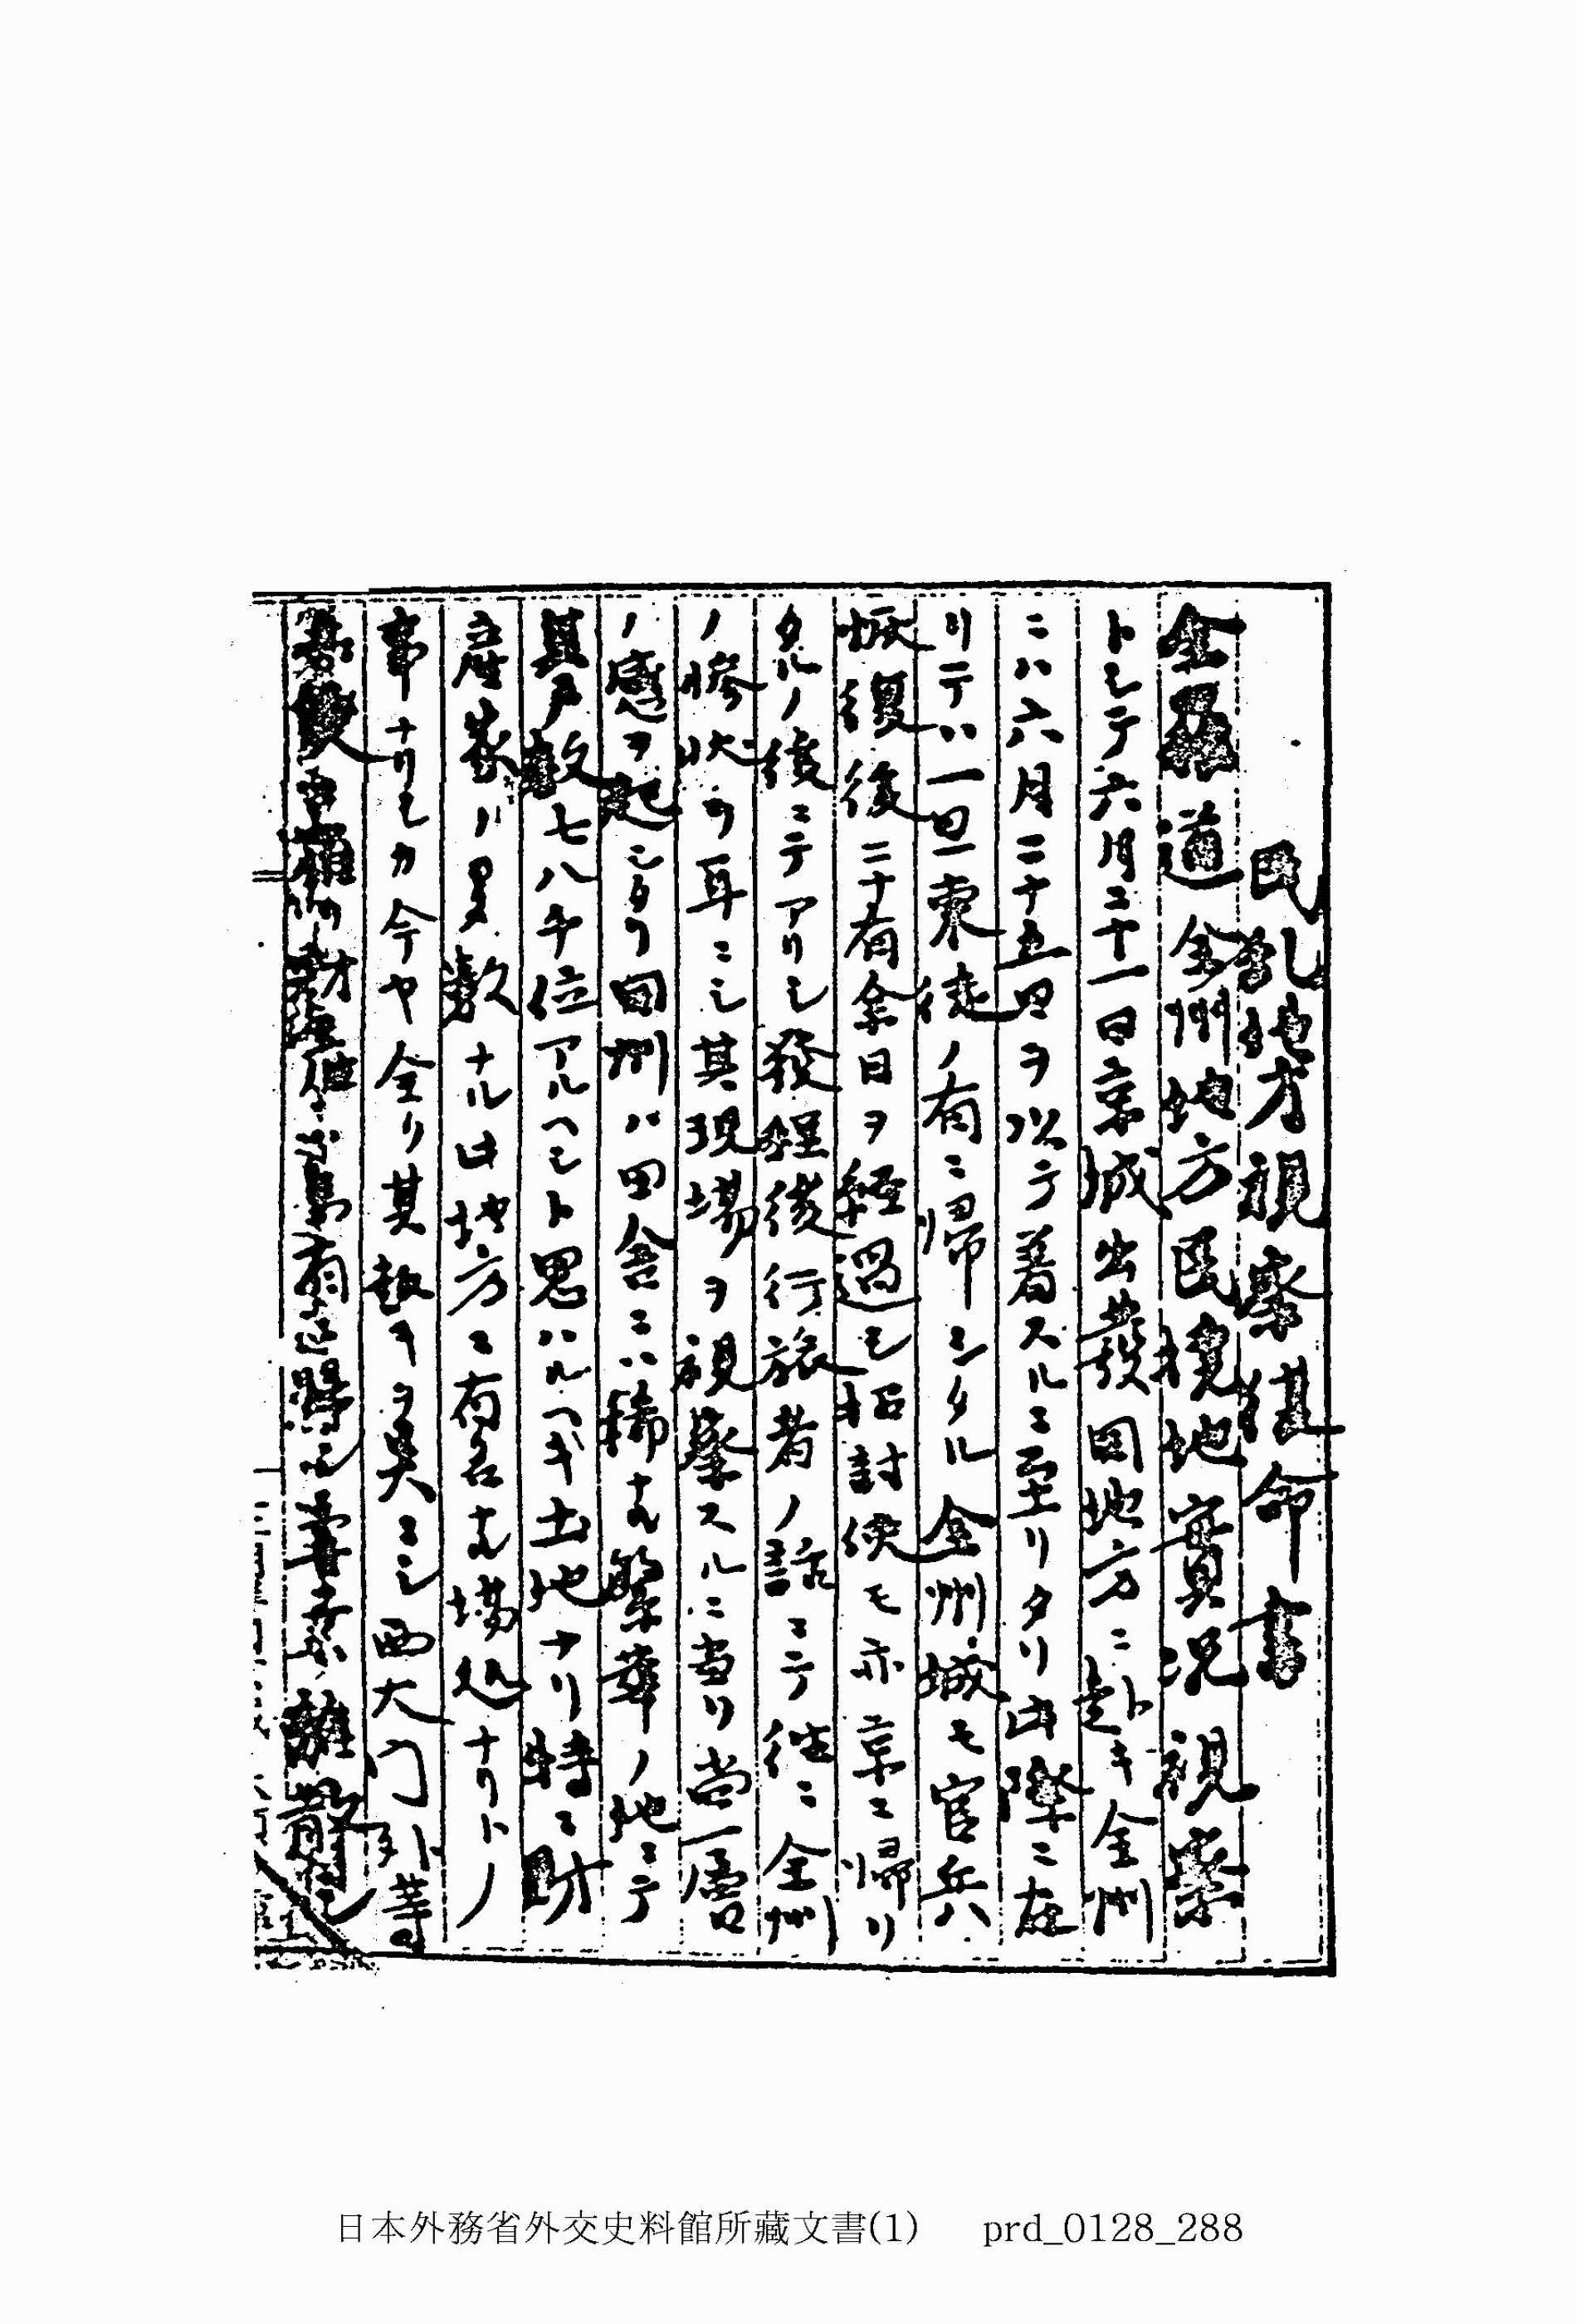 民乱地方視察復命書
全羅道全州地方民擾地實況視察
トシテ六月二十一日京城出發同地方ニ赴キ全州
ニハ六月二十五日ヲ以テ着スルニ至リタリ此際ニ在
リテハ一旦東徒ノ有ニ帰シタル全州城モ官兵
恢復後二十有余日ヲ経過シ招討使モ亦京ニ帰リ
タルノ後ニテアリシ發程後行旅者ノ話ニテ徃ニ全州
ノ惨状ヲ耳ニシ其現場ヲ視察スルニ当リ尚一層
ノ感ヲ起シタリ同州ハ田舎ニハ稀ナル繁華ノ地ニテ
其戸数七八千位アルヘシト思ハルヘキ土地ナリ特ニ財
産家ノ多数ナル此地方ニ有名ナル場処ナリトノ
事ナリシカ今ヤ全ク其趣キヲ異ニシ西大門外等
離散シ
日本外務省外交史料館所藏文書(1) prd_0128_288